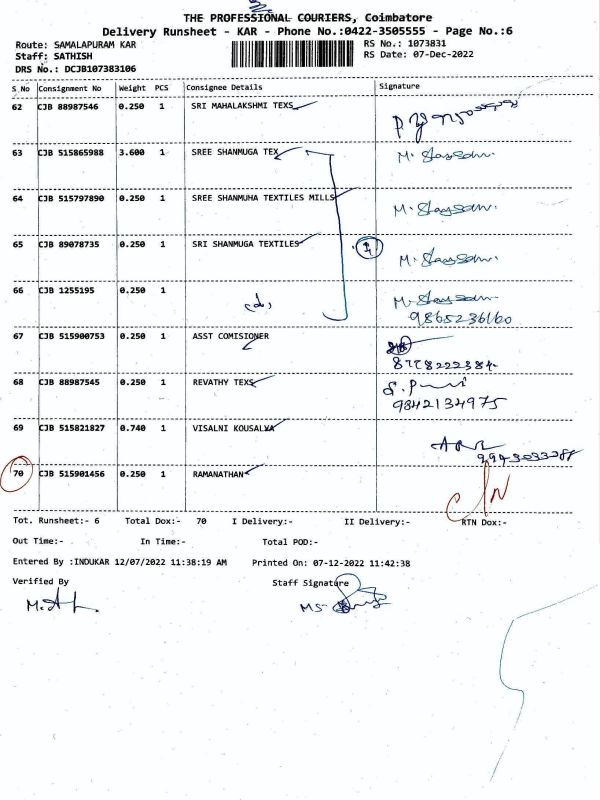 THE PROFESSIONAL COURIERS, Coimbatore
Delivery Runsheet - KAR - Phone No.:0422-3505555 - Page No.:6
Route: SAMALAPURAM KAR RS No.: 1073831
Staff: SATHISH RS Date: 07-Dec-2022
DRS No.: DCJB107383106
S No Consignment No Weight PCS Consignee Details Signature
62 CJB 88987546 0.250 1 SRI MAHALAKSHMI TEXS
63 CJB 515865988 3.600 1 SREE SHANMUGA TEX M.
64 CJB 515797890 0.250 1 SREE SHANMUHA TEXTILES MILLS M.
65 CJB 89078735 0.250 1 SRI SHANMUGA TEXTILES M.
66 CJB 1255195 0.250 1 M.
9865236160
67 CJB 515900753 0.250 1 ASST COMISIONER
68 CJB 88987545 0.250 1 REVATHY TEXS
9842134975
69 CJB 515821827 0.740 1 VISALNI KOUSALYA
70 CJB 515901456 0.250 1 RAMANATHAN
Tot. Runsheet:- 6 Total Dox:- 70 I Delivery:- II Delivery:- RTN Dox:-
Out Time:- In Time:- Total POD:-
Entered By :INDUKAR 12/07/2022 11:38:19 AM Printed On: 07-12-2022 11:42:38
Verified By Staff Signature